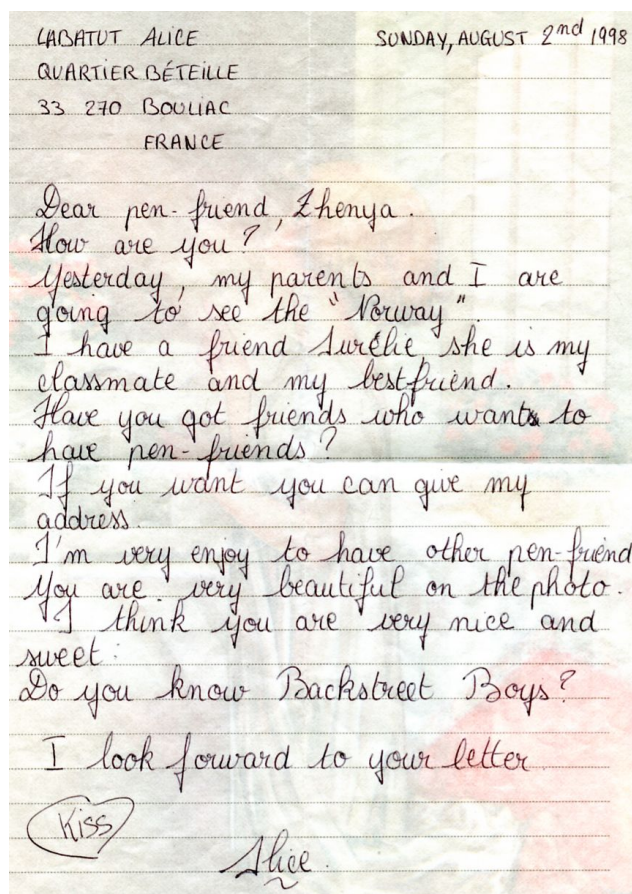 LABATUT ALICE SUNDAY, AUGUST 2nd 1998
QUARTIER BÉTEILLE
33 270 BOULIAC
FRANCE
Dear pen-friend, Zhenya.
How are you?
Yesterday, my parents and I are
going to see the "Norway".
I have a friend Aurélie, she is my
classmate and my bestfriend.
Have you got friends who wants to
have pen-friends?
If you want you can give my
address.
I'm very enjoy to have other pen-friend
You are very beautiful on the photo.
I think you are very nice and
sweet.
Do you know Backstreet Boys?
I look forward to your letter
Kiss
Alice.